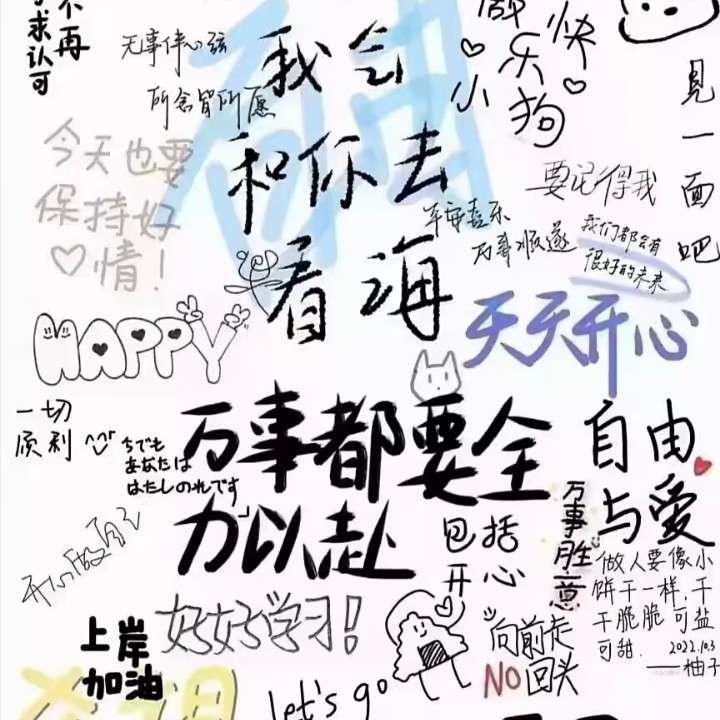 不再
求认可
无事伴心弦
所念皆所愿
我会
和你去
看海
做
快
乐
小
狗
见一面吧
今天也要
保持好
情!
要记得我
平安喜乐
万事顺遂
我们都会有
很好的未来
HAPPY
天天开心
一切
顺利
ちでも
あなたは
はたしのれです
万事都要全
力以赴
包括
开心
自由
与爱
万事胜意
开心做自己
做人要像小
饼干一样,干
干脆脆可盐
可甜.
2022.10.3
——柚子
好好学习!
上岸
加油
向前走
NO回头
let's go